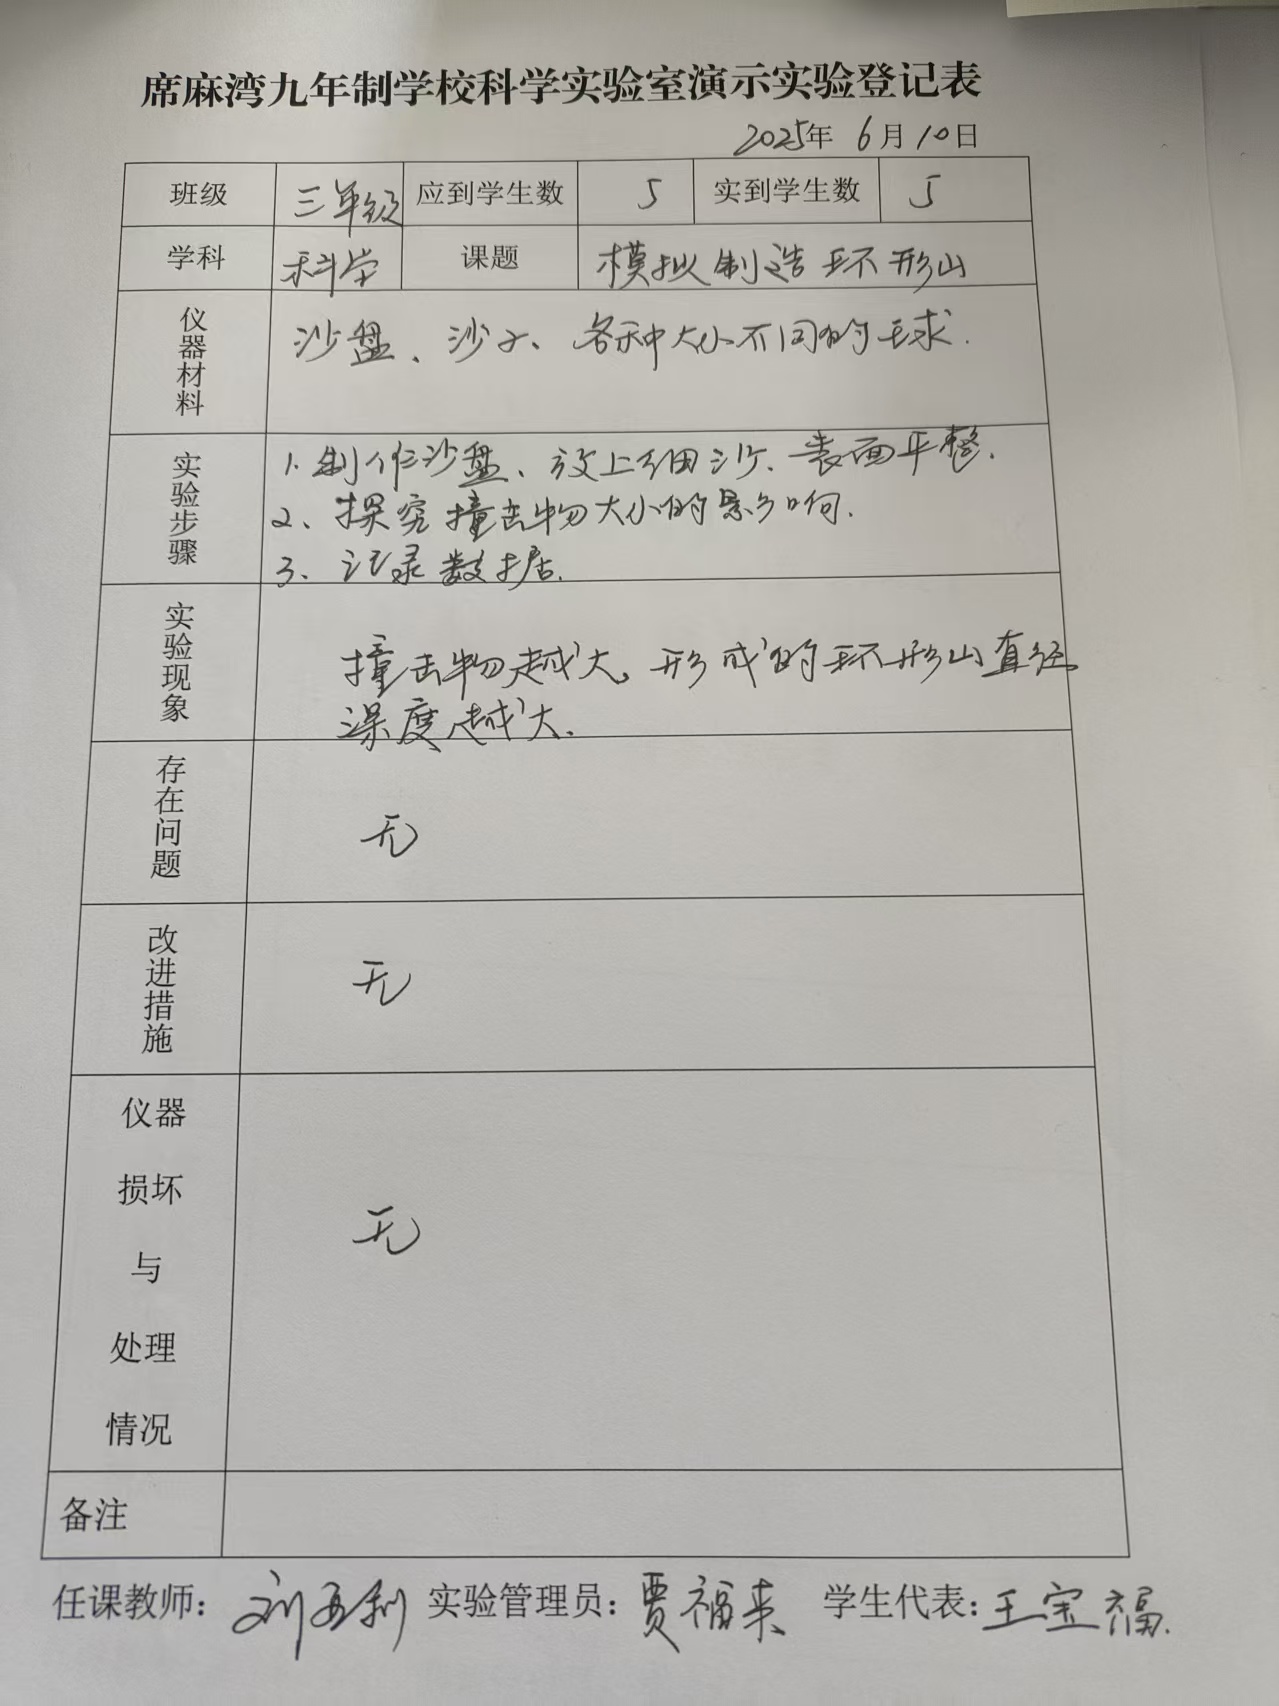 席麻湾九年制学校科学实验室演示实验登记表
2025年 6月10日
班级 三年级 应到学生数 5 实到学生数 5
学科 科学 课题 模拟制造环形山
仪器材料 沙盘、沙子、各种大小不同的球.
实验步骤 1.制作沙盘、放上细沙.表面平整.
2、探究撞击物大小的影响.
3、记录数据.
实验现象 撞击物越大。形成的环形山直径
深度越大.
存在问题 无
改进措施 无
仪器
损坏
与
处理
情况
无
备注
任课教师: 刘 利 实验管理员: 贾福来 学生代表: 王宝福.